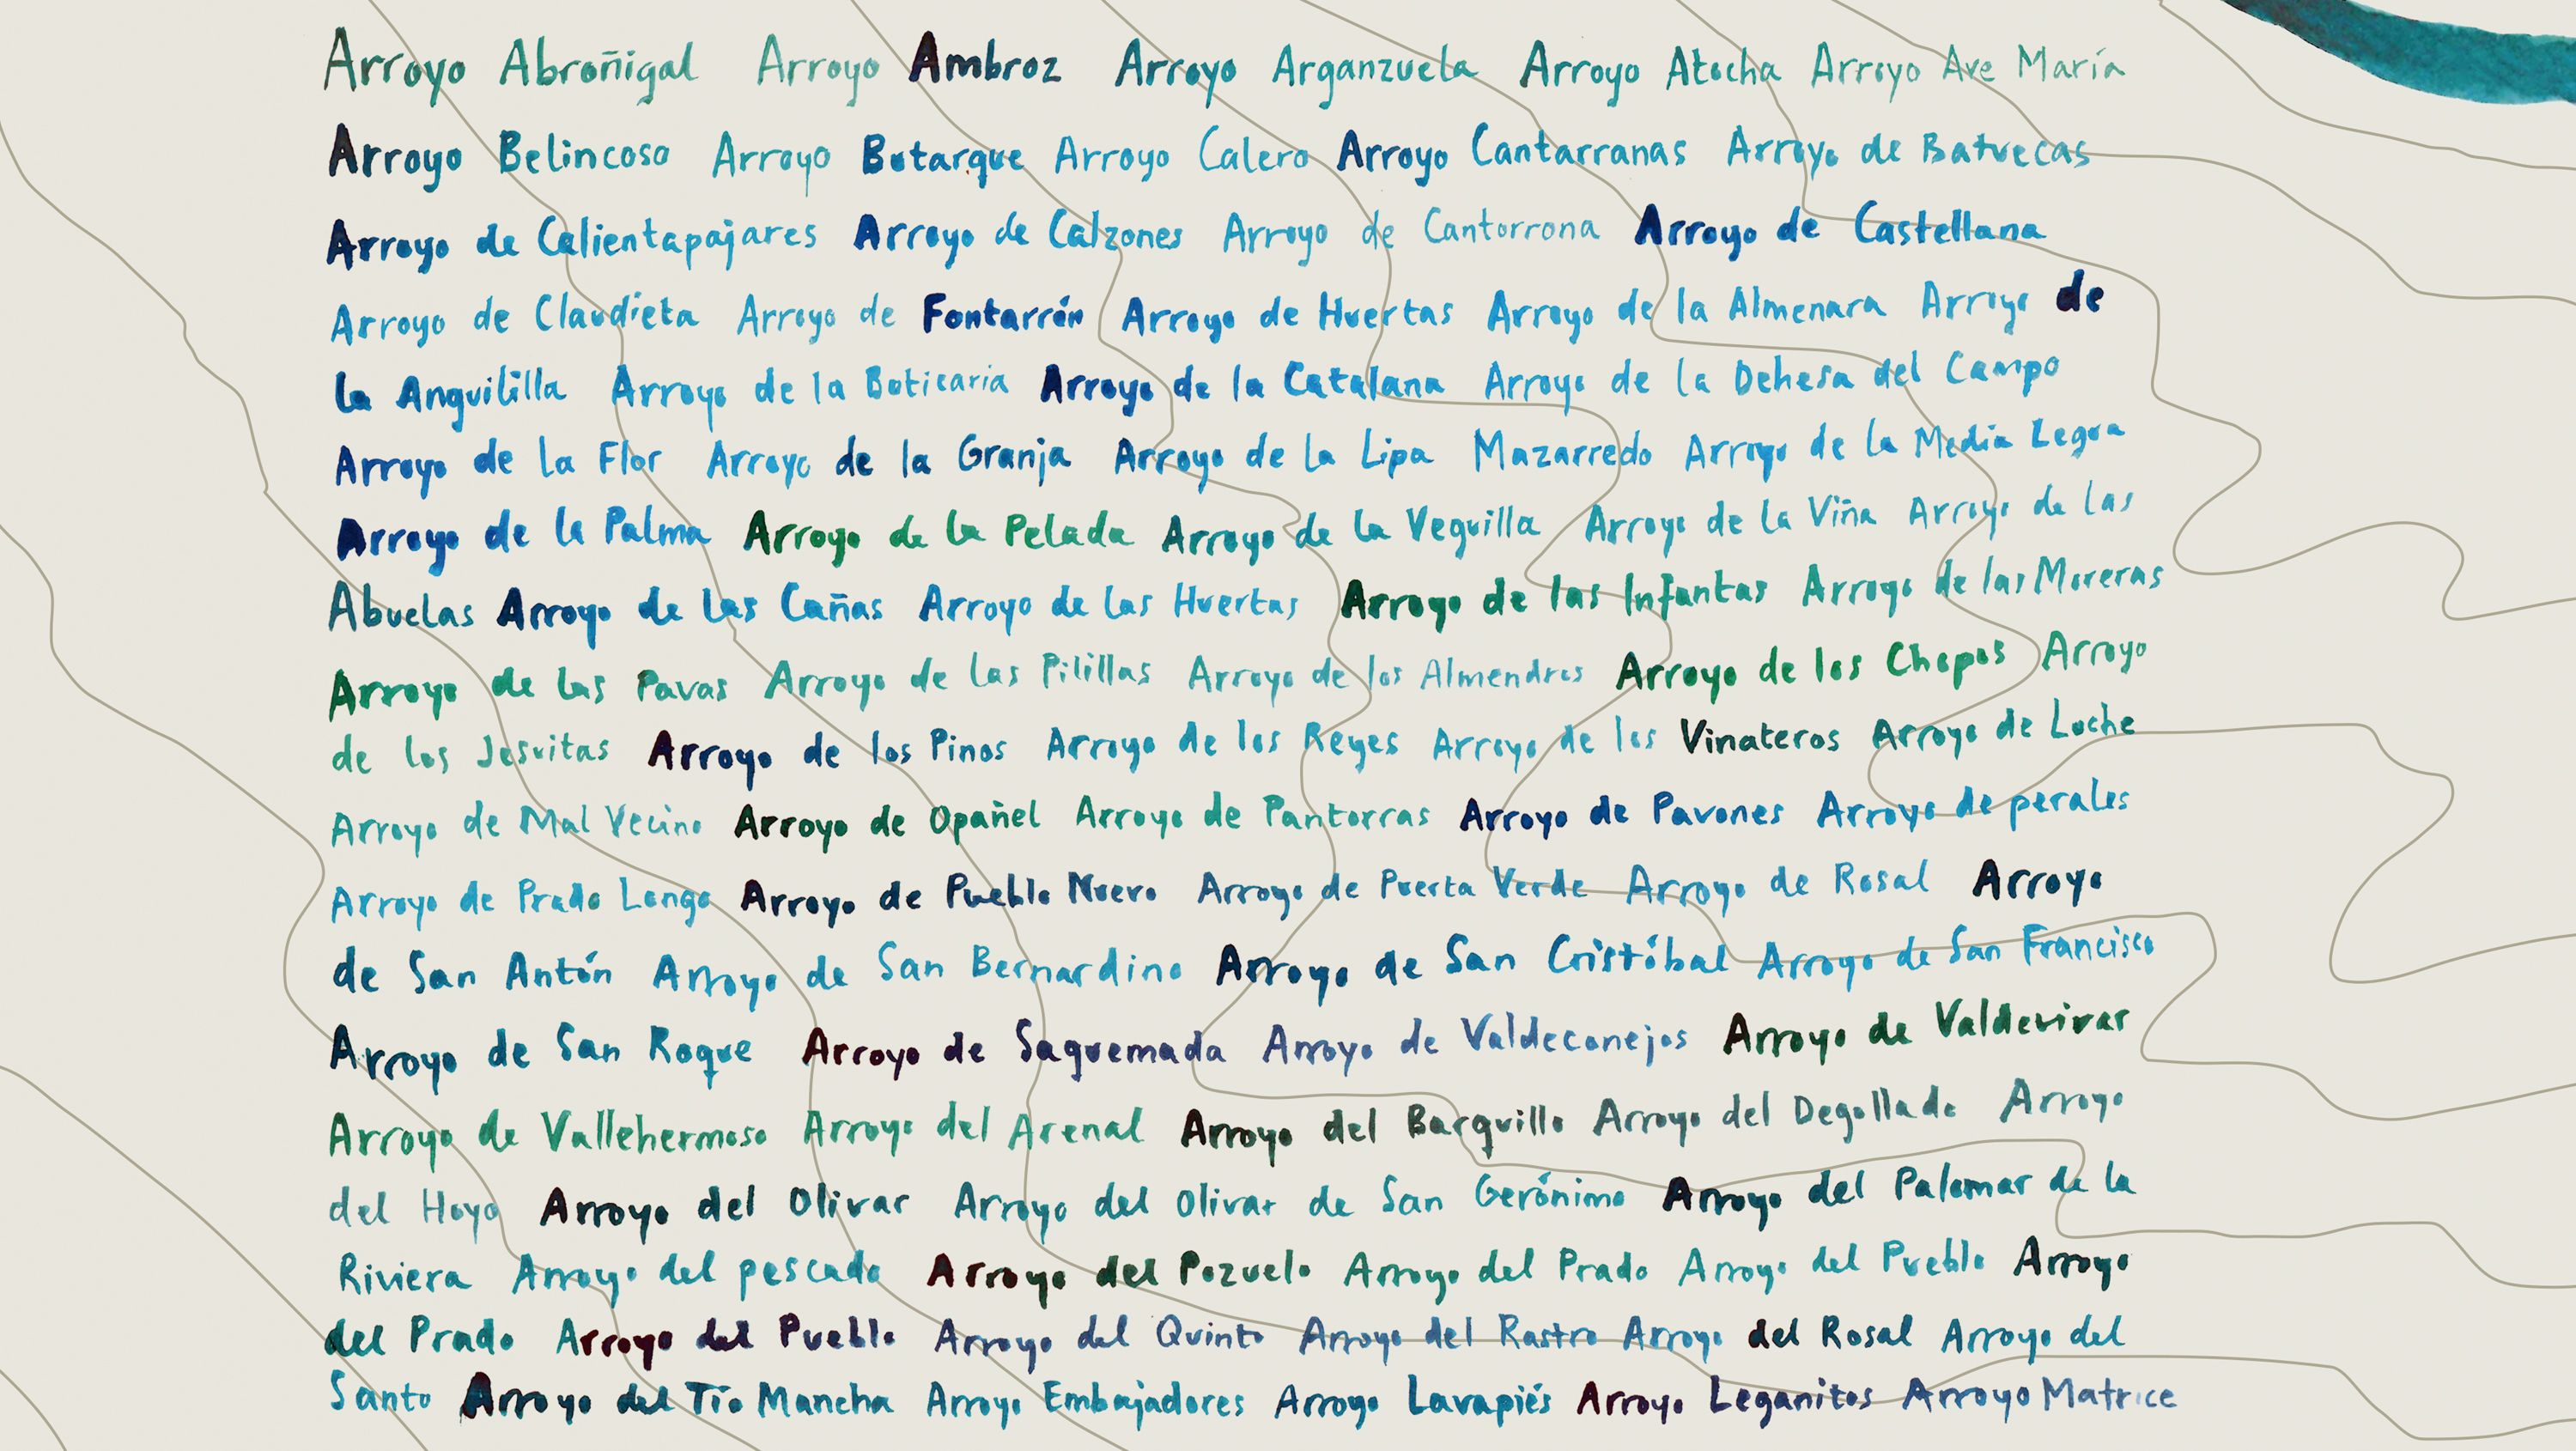 Arroyo Abroñigal Arroyo Ambroz Arroyo Arganzuela Arroyo Atocha Arroyo Ave María
Arroyo Belincoso Arroyo Butarque Arroyo Calero Arroyo Cantarranas Arroyo de Batuecas
Arroyo de Calientapajares Arroyo de Calzones Arroyo de Cantorrona Arroyo de Castellana
Arroyo de Claudieta Arroyo de Fontarrón Arroyo de Huertas Arroyo de la Almenara Arroyo de
la Anguililla Arroyo de la Boticaria Arroyo de la Catalana Arroyo de la Dehesa del Campo
Arroyo de la Flor Arroyo de la Granja Arroyo de la Lipa Mazarredo Arroyo de la Media Legua
Arroyo de la Palma Arroyo de la Pelada Arroyo de la Veguilla Arroyo de la Viña Arroyo de las
Abuelas Arroyo de las Cañas Arroyo de las Huertas Arroyo de las Infantas Arroyo de las Moreras
Arroyo de las Pavas Arroyo de las Pilillas Arroyo de los Almendros Arroyo de los Chopos Arroyo
de los Jesuitas Arroyo de los Pinos Arroyo de los Reyes Arroyo de los Vinateros Arroyo de Luche
Arroyo de Mal Vecino Arroyo de Opañel Arroyo de Pantorras Arroyo de Pavones Arroyo de perales
Arroyo de Prado Longo Arroyo de Pueblo Nuevo Arroyo de Puerta Verde Arroyo de Rosal Arroyo
de San Antón Arroyo de San Bernardino Arroyo de San Cristóbal Arroyo de San Francisco
Arroyo de San Roque Arroyo de Saquemada Arroyo de Valdeconejos Arroyo de Valdevivar
Arroyo de Vallehermoso Arroyo del Arenal Arroyo del Barquillo Arroyo del Degollado Arroyo
del Hoyo Arroyo del Olivar Arroyo del Olivar de San Gerónimo Arroyo del Palomar de la
Riviera Arroyo del pescado Arroyo del Pozuelo Arroyo del Prado Arroyo del Pueblo Arroyo
del Prado Arroyo del Pueblo Arroyo del Quinto Arroyo del Rastro Arroyo del Rosal Arroyo del
Santo Arroyo del Tío Mancha Arroyo Embajadores Arroyo Lavapiés Arroyo Leganitos Arroyo Matrice